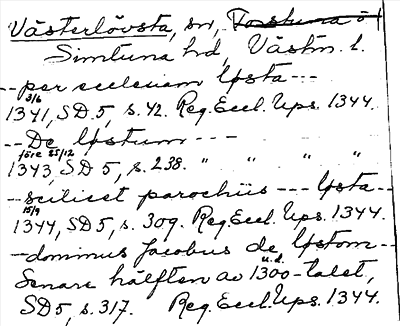 Västerlövsta, sn, Torstuna ö
Simtuna hd, Västm. l.
-- per ecclesiam Løsta ---
3/6
1341, SD 5, s. 42. Reg. Eccl. Ups. 1344.
-- De Løstum ---
före 25/12
1343, SD 5, s. 238. " " " "
-- scilicet parochiis --- Løsta --
15/9
1344, SD 5, s. 309. Reg. Eccl. Ups. 1344.
-- dominus Jacobus de Løstom --
u.d.
Senare hälften av 1300-talet,
SD 5, s. 317. Reg. Eccl. Ups. 1344.